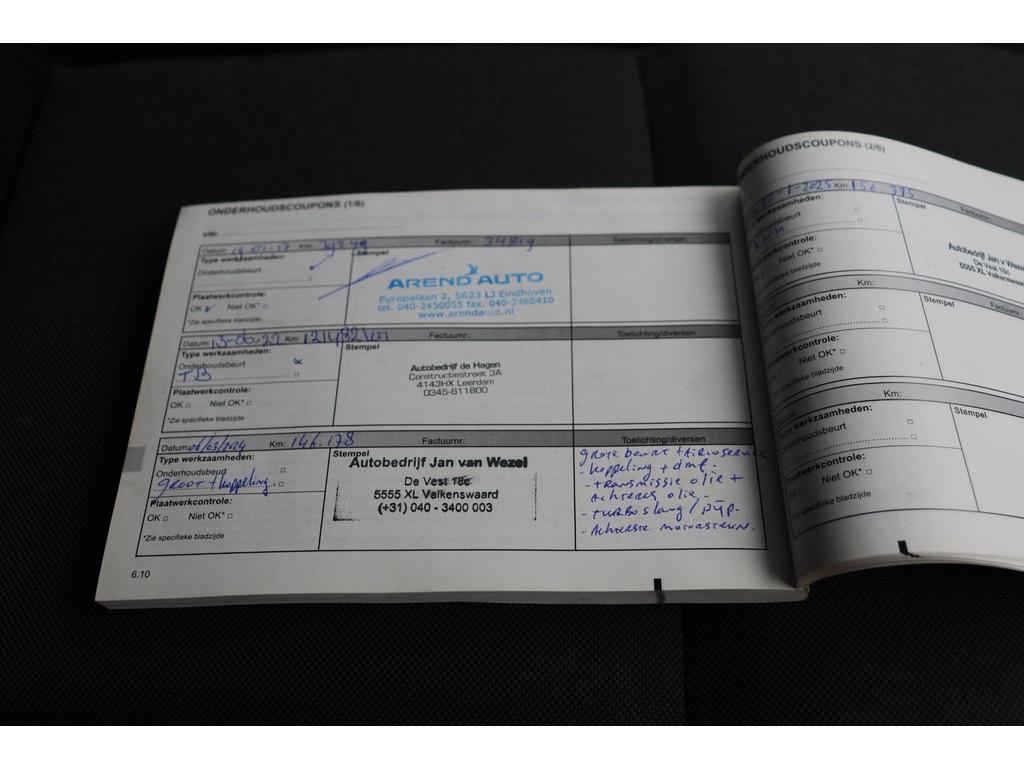 ONDERHOUDSCOUPONS (1/6)
VIN:
Datum: 19-01-17 Km: Factuurnr.: 34819 Toelichting/diversen
Type werkzaamheden: Stempel
Onderhoudsbeurt
Plaatwerkcontrole:
OK Niet OK*
*Zie specifieke bladzijde
AREND AUTO
Europalaan 2, 5623 LJ Eindhoven
tel. 040-2450055 fax. 040-2460410
www.arendauto.nl
Datum: 13-06-22 Km: 121482 km Factuurnr.: Toelichting/diversen
Type werkzaamheden: Stempel
Onderhoudsbeurt
Plaatwerkcontrole:
OK Niet OK*
*Zie specifieke bladzijde
Autobedrijf de Hagen
Constructiestraat 3A
4143HX Leerdam
0345-611800
Datum: 06/03/2024 Km: 146.178 Factuurnr.: Toelichting/diversen
Type werkzaamheden: Stempel
Onderhoudsbeurt
groot + koppeling
Plaatwerkcontrole:
OK Niet OK*
*Zie specifieke bladzijde
Autobedrijf Jan van Wezel
De Vest 18c
5555 XL Valkenswaard
(+31) 040 - 3400 003
grote beurt +
- koppeling + dmf.
- transmissie olie +
Achteras olie.
- turboslang / pijp.
- Achterste motorsteun.
6.10
ERHOUDSCOUPONS (2/6)
-1-2025 Km: 156 395
werkzaamheden: Stempel
Onderhoudsbeurt
Niet OK*
bladzijde
Autobedrijf Jan v Wezel
De Vest 18c
5555 XL Valkenswaard
Km:
werkzaamheden: Stempel
Onderhoudsbeurt
Plaatwerkcontrole:
Niet OK*
*Zie specifieke bladzijde
Km:
Type werkzaamheden: Stempel
Onderhoudsbeurt
Plaatwerkcontrole:
OK Niet OK*
*Zie specifieke bladzijde